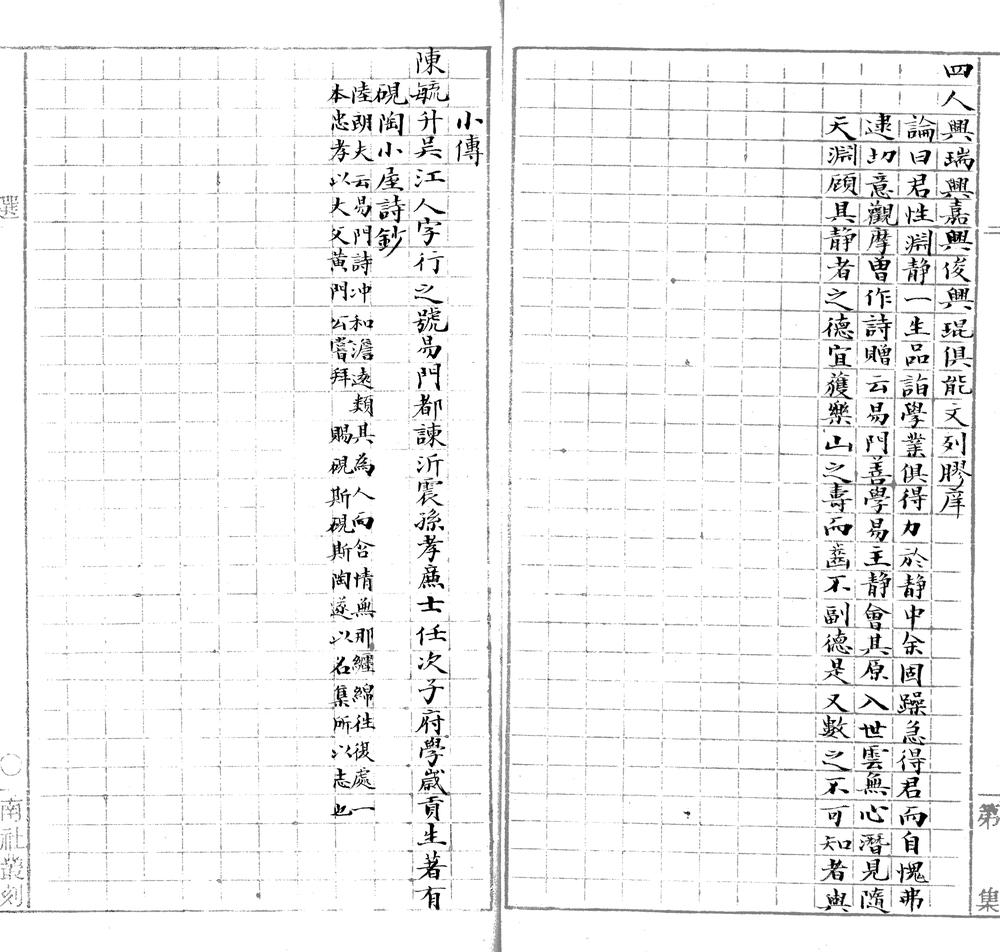 四人興瑞興嘉興俊興琨俱能文列膠庠
論曰君性淵静一生品詣學業俱得力於静中余固躁急得君而自愧弗
逮切意觀摩曽作詩贈云易門善學易主静會其原入世雲無心潛見隨
天淵顧具静者之德宜獲樂山之壽而齒不副德是又數之不可知者與
小傳
陳毓升吳江人字行之號易門都諫沂震孫孝廉士任次子府學歲貢生著有
硯陶小座詩鈔
陸朗夫云易門詩冲和澹遠類其為人向含情無那纏綿往復處一
本忠孝以大父黃門公嘗拜賜硯斯硯斯陶遂以名集所以志也
二
第 集
選
〇南社叢刻